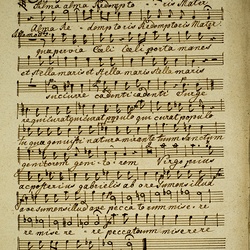 Alma alma Redempto - - ris Mater
Alma Re - demptoris Redemptoris Mater
quae pervia Coeli Coeli porta manes
et stella maris et stella maris stella maris
succurre cadenti cadenti surge
qui curat populo qui curat populo
natura mirante tuum sanctum
genitorem geni - to - rem Virgo prius
ac posterius gabrielis ab ore sumens illud
ore sumens illud ave peccatorum misere -
re misere - re peccatorum miserere